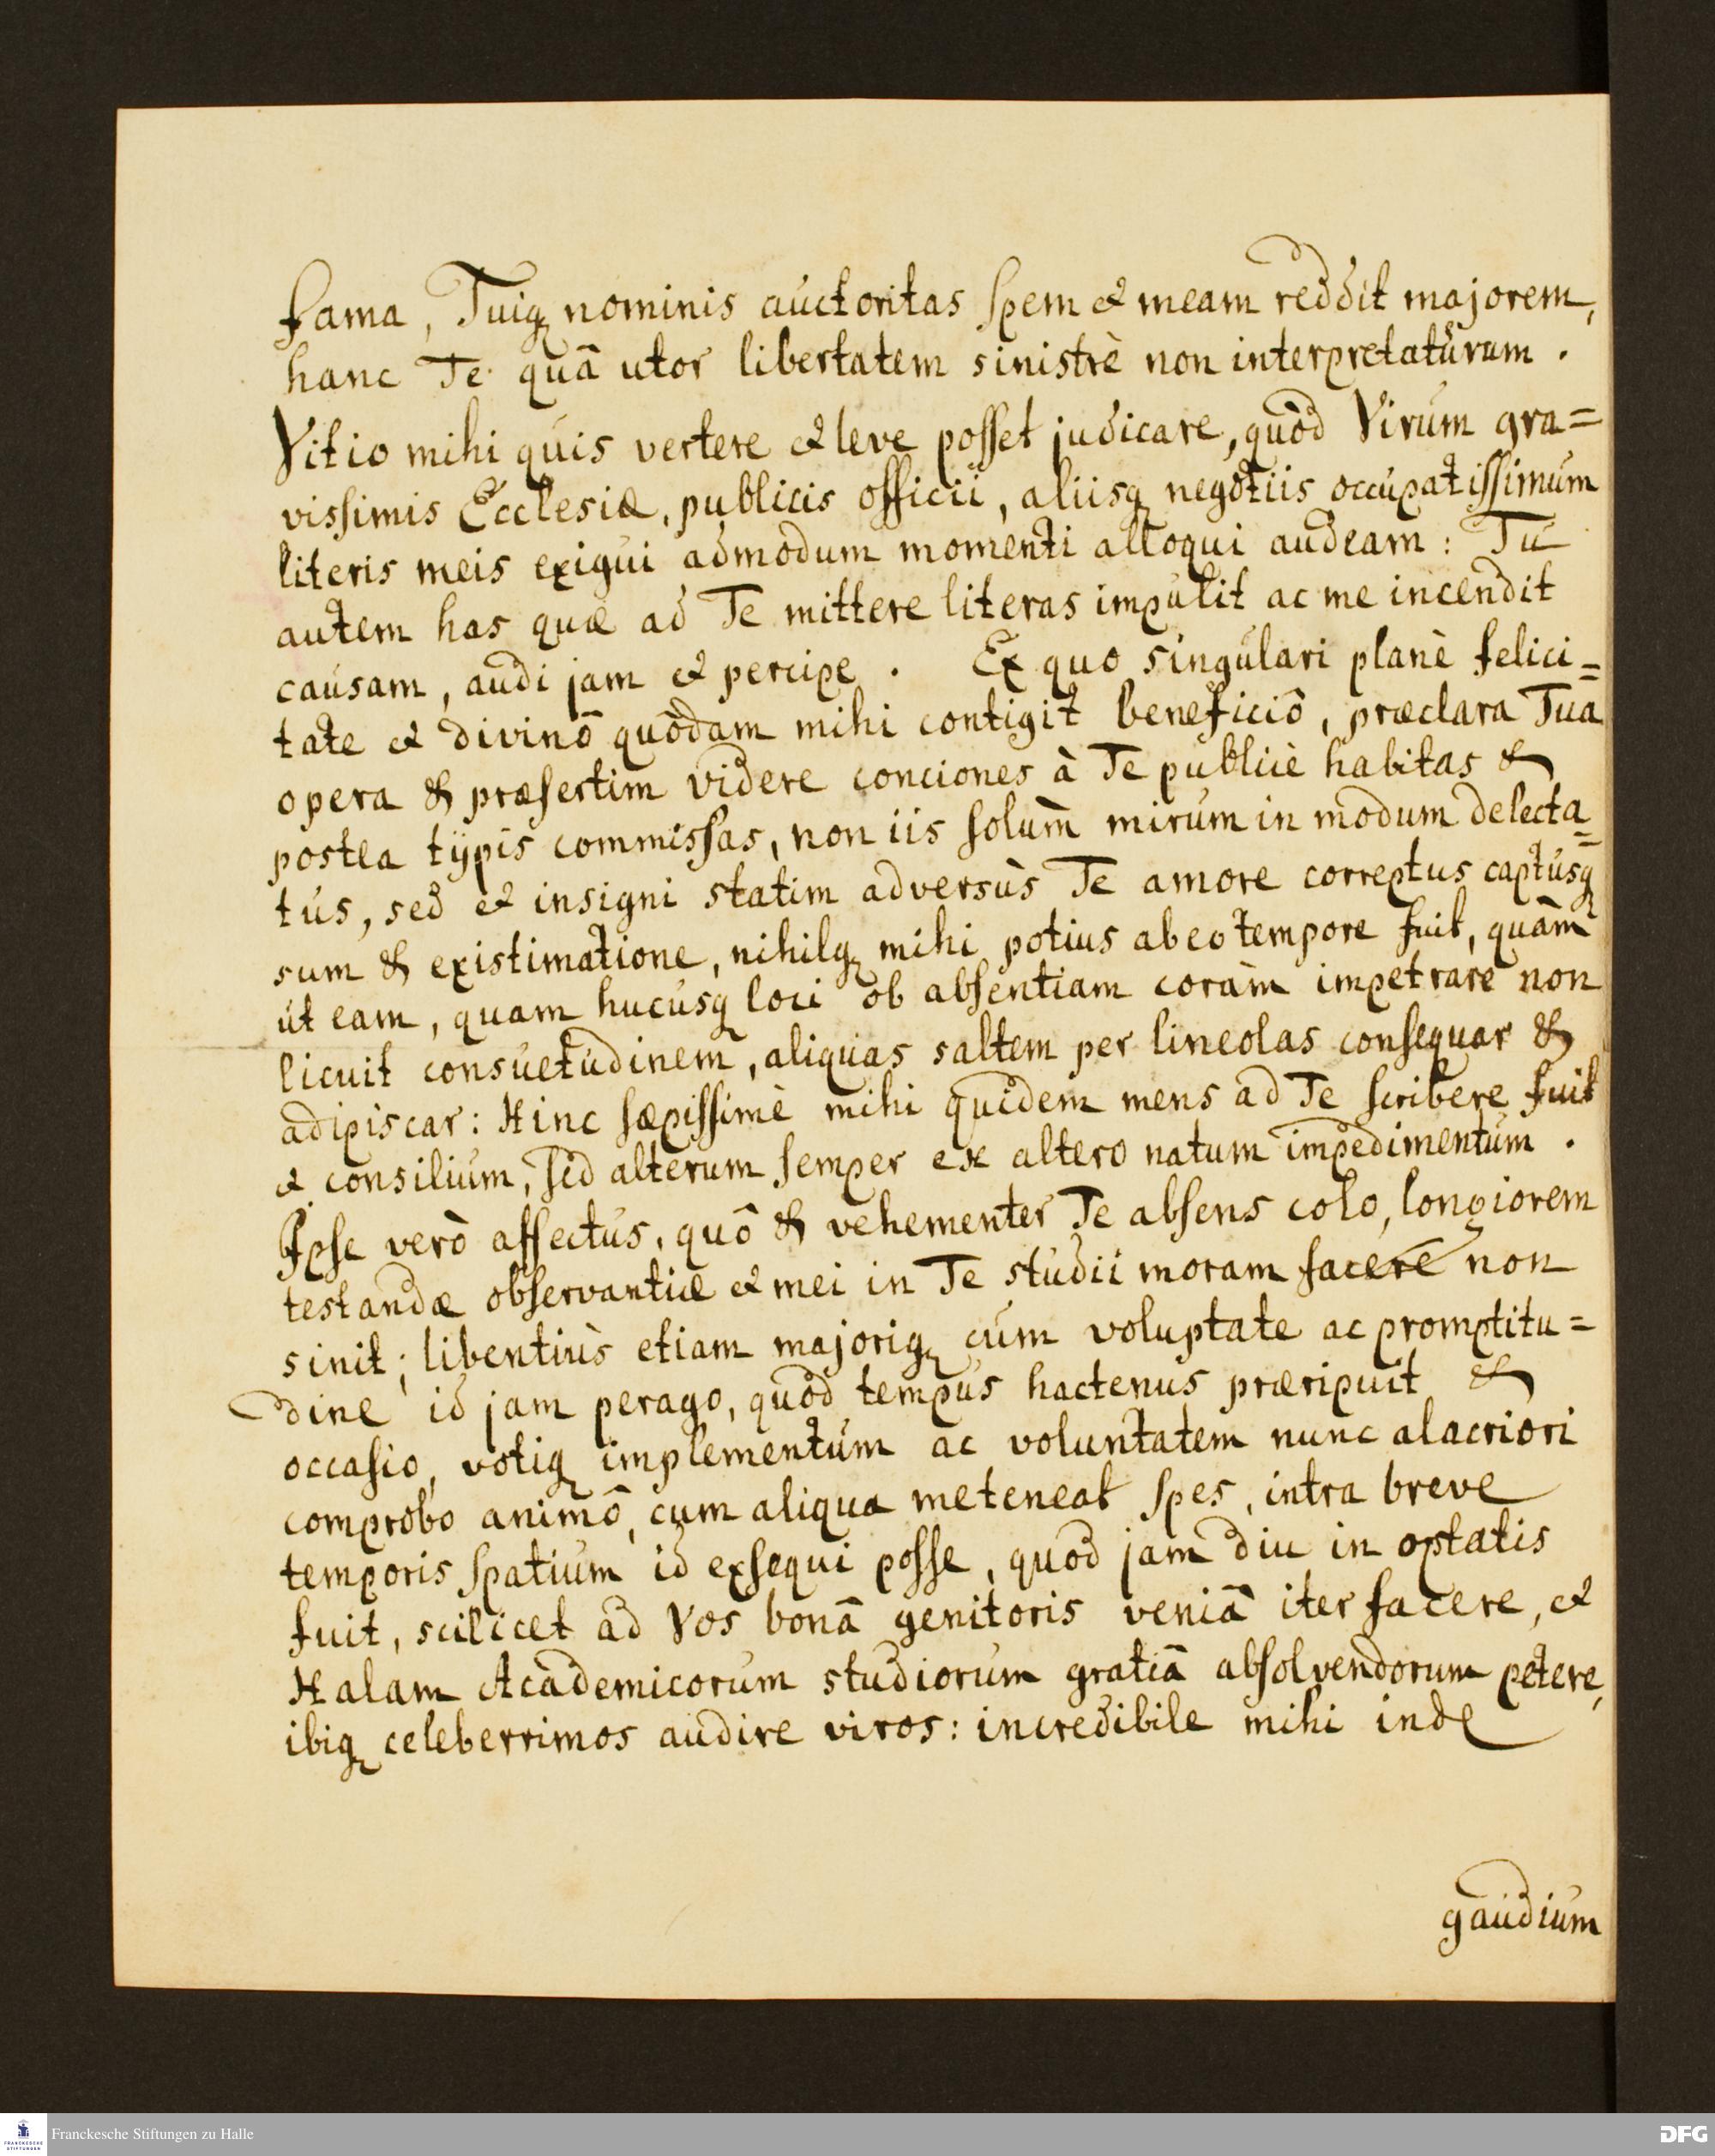 fama, Tuiq nominis auctoritas spem et meam reddit majorem,
hanc Te quâ utor libertatem sinistrè non interpretaturum.
Vitio mihi quis vertere et leve posset judicare, quòd Virum gra=
vissimis Ecclesiæ, publicis officii, aliisq negotiis occupatissimum
literis meis exigui admodum momenti alloqui audeam: Tu
autem has quæ ad Te mittere literas impulit ac me incendit
causam, audi jam et percipe. Ex quo singulari planè felici=
tate et divinô quôdam mihi contigit beneficiô, præclara Tua
opera & præsertim videre conciones à Te publicè habitas &
postea typis commissas, non iis solùm mirum in modum delecta=
tus, sed et insigni statim adversùs Te amore correptus captusq
sum & existimatione, nihilq mihi potius ab eo tempore fuit, quàm
ut eam, quam hucusq loci ob absentiam coràm impetrare non
licuit consuetudinem, aliquas saltem per lineolas consequar &
adipiscar: Hinc sæpissimè mihi quidem mens ad Te scribere fuit
et consilium, sed alterum semper ex altero natum impedimentum.
Ipse verò affectus, quô & vehementer Te absens colo, longiorem
testandæ observantiæ et mei in Te studii moram facere non
sinit; libentiùs etiam majoriq cum voluptate ac promptitu=
dine id jam perago, quod tempus hactenus præripuit &
occasio, votiq implementum ac voluntatem nunc alacriori
comprobo animô, cum aliqua me teneat spes, intra breve
temporis spatium id exsequi posse, quod jam diu in optatis
fuit, scilicet ad Vos bonâ genitoris veniâ iter facere, et
Halam Academicorum studiorum gratiâ absolvendorum petere,
ibiq celeberrimos audire viros: incredibile mihi inde
gaudium
Franckesche Stiftungen zu Halle
FRANCKESCHE STIFTUNGEN
DFG